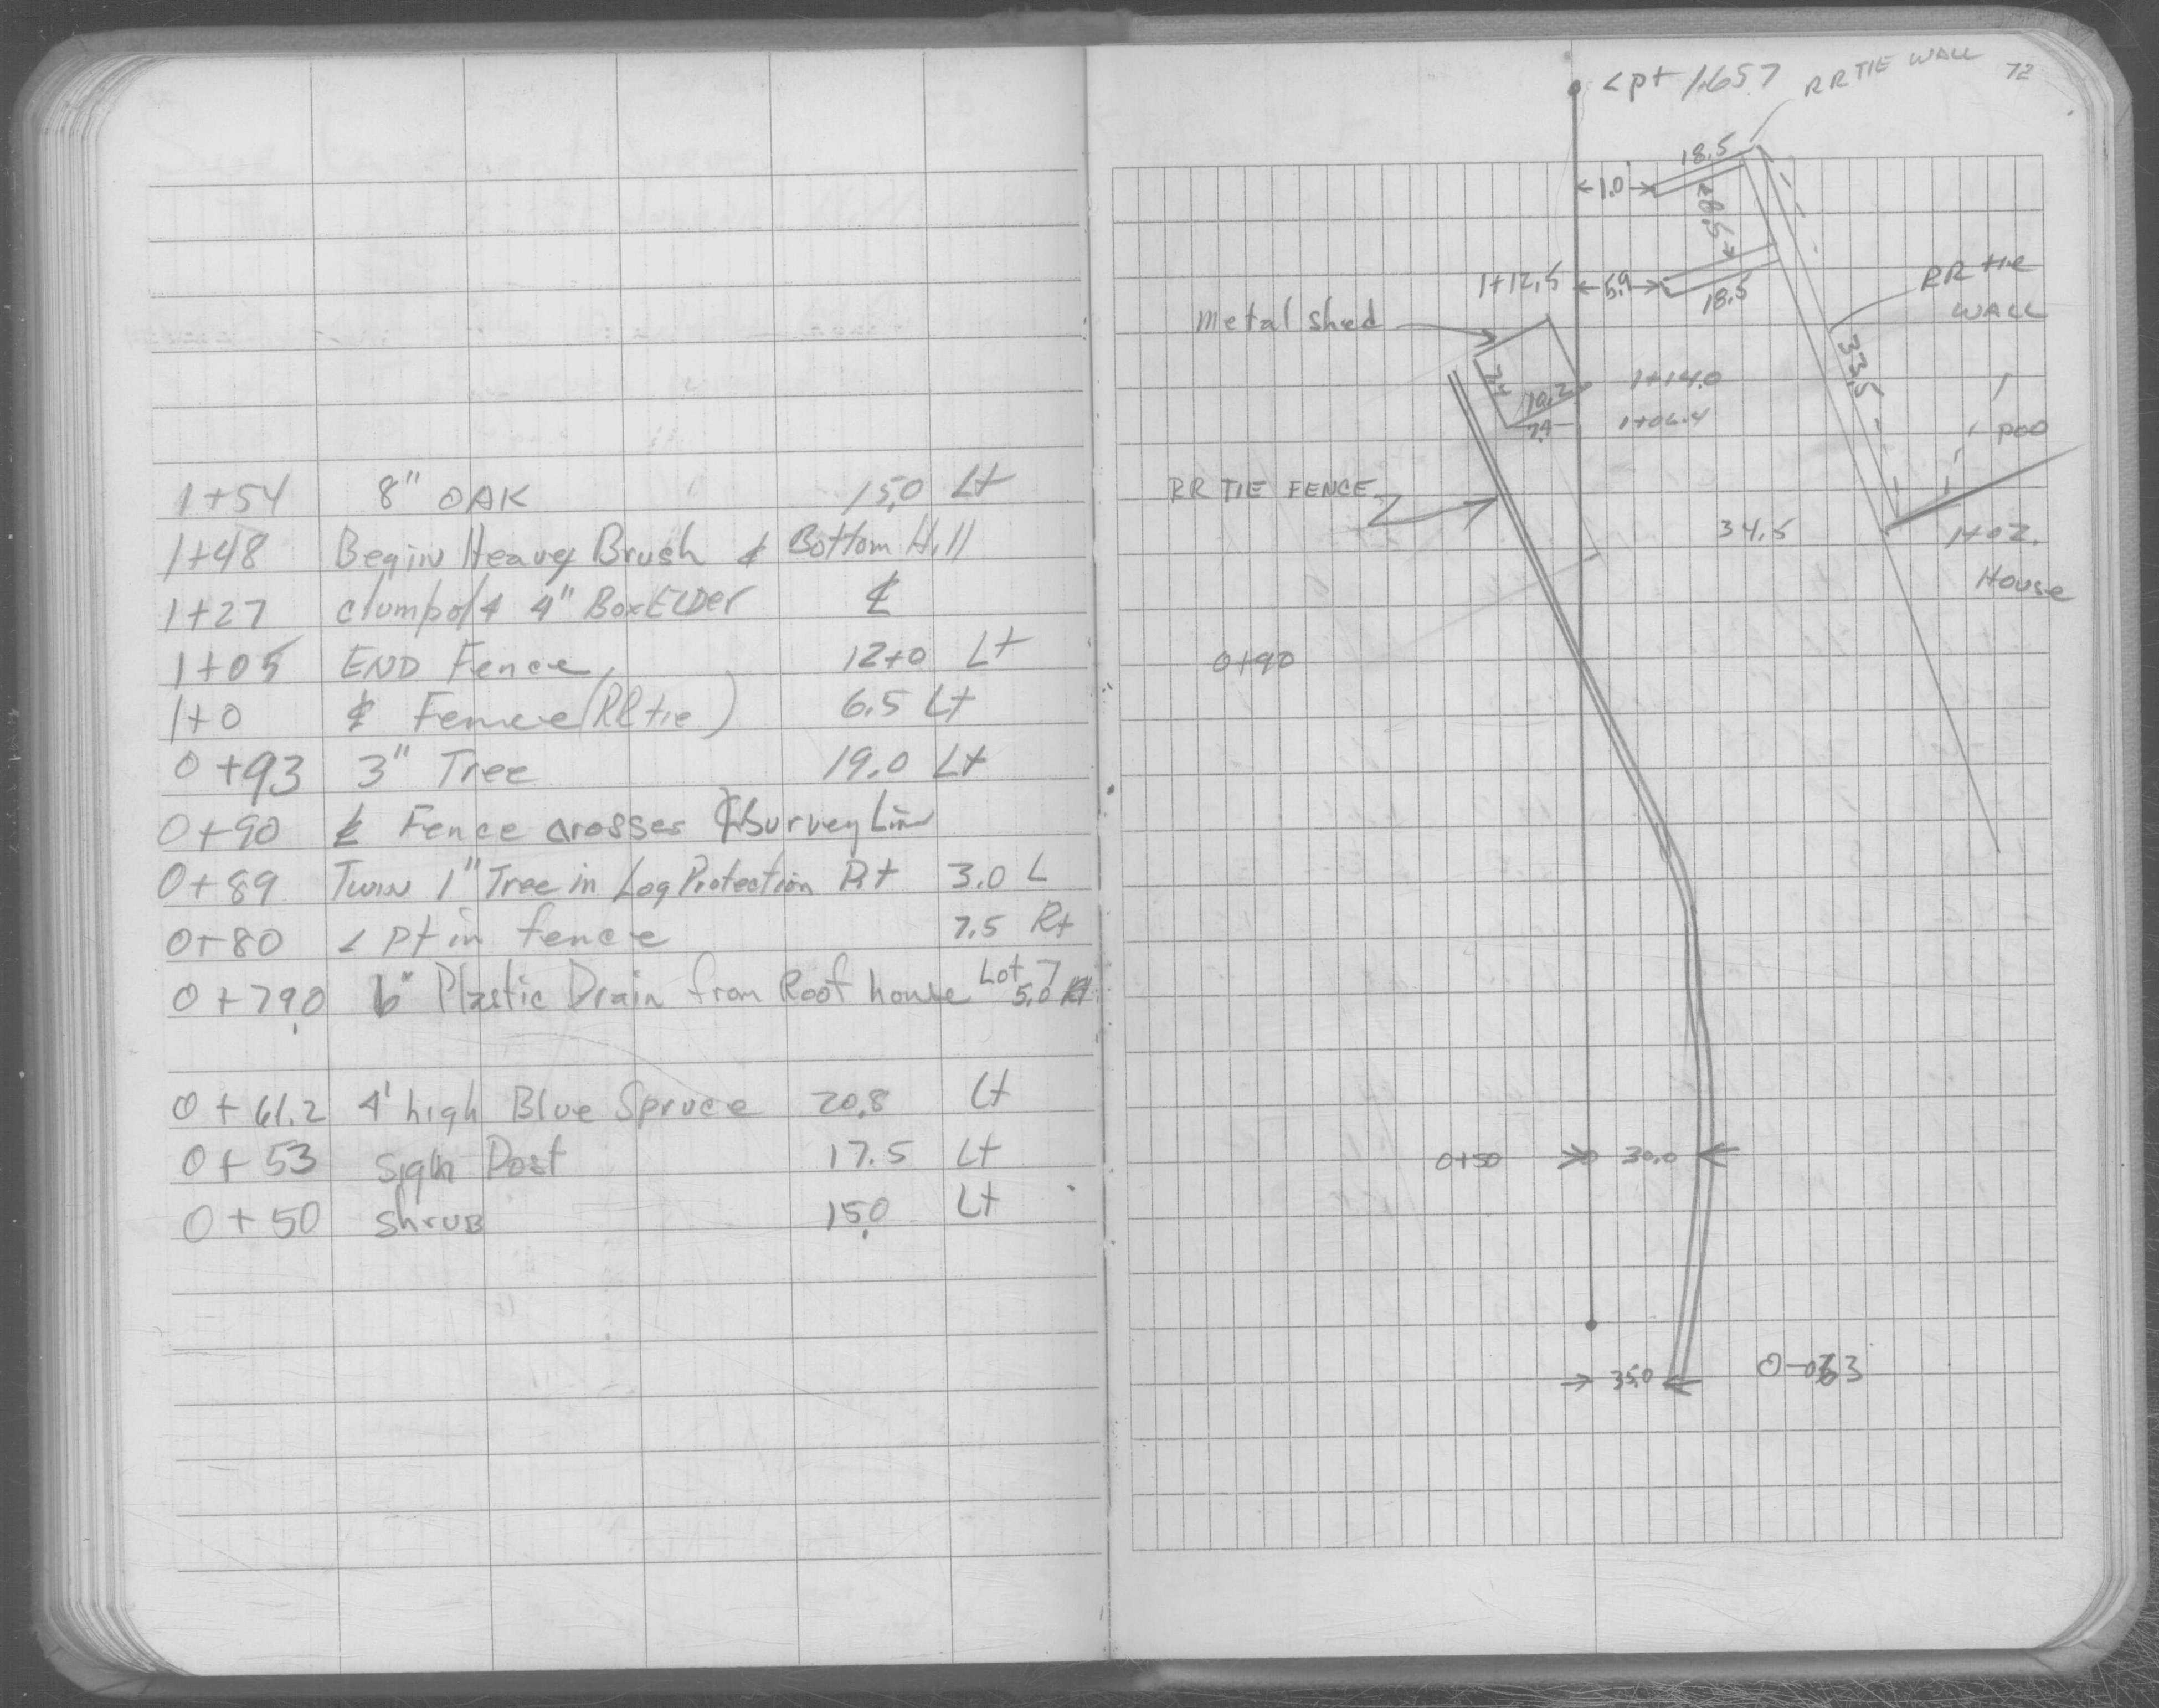 1+54 8" OAK 15.0 Lt
1+48 Begin Heavy Brush & Bottom Hill
1+27 clump of 4 4" BoxELDer ℄
1+05 END Fence 12+0 Lt
1+0 ℄ Fence (RR tie) 6.5 Lt
0+93 3" Tree 19.0 Lt
0+90 ℄ Fence crosses ℄ Survey Line
0+89 Twin 1" Tree in Log Protection Rt 3.0 L
0+80 < pt in fence 7.5 Rt
0+79.0 6" Plastic Drain from Roof house Lot 7 5.0 Rt
0+61.2 4' high Blue Spruce 20.8 Lt
0+53 Sign Post 17.5 Lt
0+50 ShruB 15.0 Lt
72
< pt 1+65.7
RR TIE WALL
18.5
1.0
18.5
1+12.5
5.9
18.5
RR tie
WALL
Metal Shed
33.5
7.4
10.2
1+14.0
7.4
1+06.4
Poo
RR TIE FENCE
34.5
1+02.
House
0+90
0+50
30.0
35.0